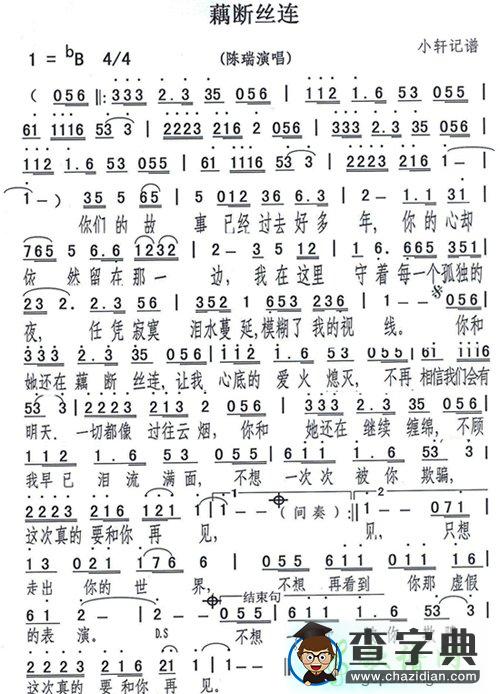 藕断丝连
小轩记谱
1 = bB 4/4 (陈瑞演唱)
( 056 ‖: 333 2.3 35 056 | 112 1.6 53 055 |
61 1116 53 3 | 2223 216 2 056 | 333 2.3 35 056 |
112 1.6 53 055 | 61 1116 53 3 | 2223 216 1 — |
1 — ) 35 5 65 | 5 012 36 6.3 | 2 — 1.1 31 |
你们的故 事已经过去好多 年,你的心却
765 5 6.6 1232 | 2 — 3 5 12 | 1 6. 665 351 |
依然留在那一 边,我在这里 守着每一个孤独的
23 2. 2.3 56 | 352 1 653 236 | 1 — — 056 |
夜,任凭寂寞 泪水蔓延,模糊了我的视 线。你和
333 2.3 35 056 | 112 1.6 53 055 | 61 1116
她还在藕断丝连,让我 心底的爱火熄灭,不再 相信我们会有
53 3 | 2223 216 2 056 | 333 2.3 35 056 |
明天.一切都像过往云烟,你和 她还在继续缠绵,不顾
112 1.6 53 055 | 61 1 116 53 3 |
我早已泪流满面,不想 一次次被你欺骗,
2223 216 1 | 1 — — ( 间奏 ) :‖ 1 — — 071 |
这次真的要和你再 见, 见,只想
13 023 021 176 | 6 — — 055 | 611 1 116
走出你的世 界,不想 再看到你那虚假
61 2 — | 2 — — 055 | 611 1 116 53 3 |
的表演。 D.S 结束句 不想
2223 216 1 | 1 — — — ‖
这次真的要和你再 见。
查字典
www.chazidian.com